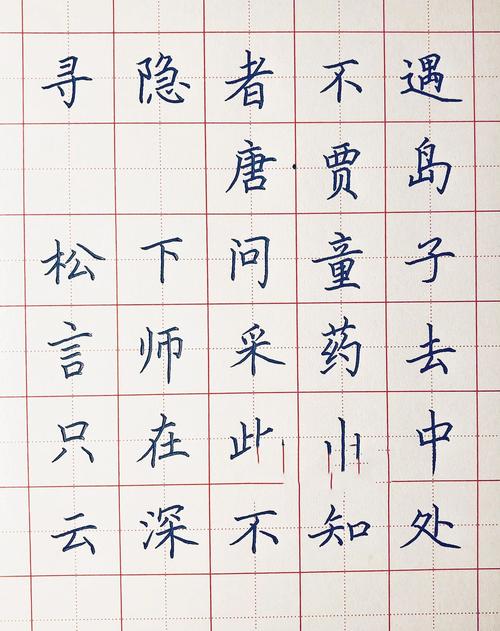 寻隐者不遇
唐贾岛
松下问童子
言师采药去
只在此中
云深不知处